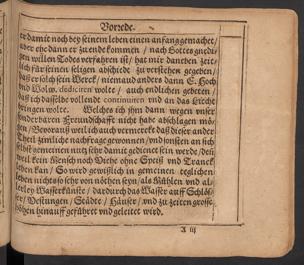 Vorrede.
er damit noch bey seinem leben einen anfang gemachet/
aber ehe dann er zu ende kommen / nach Gottes gnedi-
gen willen Todes verfahren ist/ hat mir daneben zeit-
lich für seinen seligen abschiede zu verstehen gegeben/
daß er solch sein Werck / niemand anders dann E. Hoch
und Wolw. dediciren wolte / auch endlichen gebeten /
daß ich dasselbe vollende continuiren und an das Liecht
bringen wolte. Welches ich ihm dann wegen unser
sonderbaren Freundschafft nicht habe abschlagen mö-
gen/ Bevorauß weil ich auch vermerckt daß dieser ander
Theil zimliche nachfrage gewonnen/ und sonsten an sich
selbst gemeinem nutz sehr damit gedienet sein werde/ dein
weil kein Mensch noch Viehe ohne Speiß und Tranck
leben kan/ So wird gewißlich in gemeinen teglichen
leben nichts so sehr von nöthen seyn/ als Mühlen und al-
lerley Wasserkünste / dardurch das Wasser auff Schlös-
ser/ Vestungen / Städte / Häuser/ und zu zeiten grosse
Höhen hinauff geführet und geleitet wird.
A iij